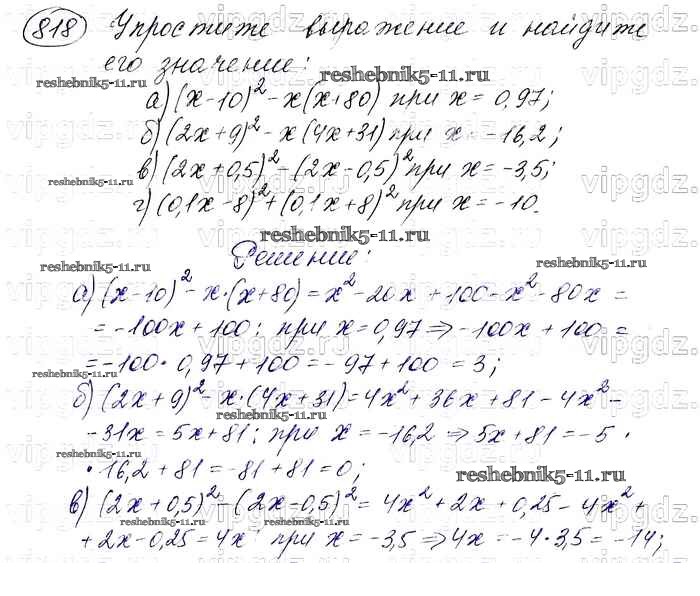 818 Упростите выражение и найдите
его значение:
reshebnik5-11.ru
а) (x-10)² - x(x+80) при x = 0,97;
б) (2x+9)² - x(4x+31) при x = -16,2;
в) (2x+0,5)² - (2x-0,5)² при x = -3,5;
г) (0,1x-8)² + (0,1x+8)² при x = -10.
reshebnik5-11.ru
Решение:
а) (x-10)² - x·(x+80) = x² - 20x + 100 - x² - 80x =
= -100x + 100; при x = 0,97 ⇒ -100x + 100 =
= -100·0,97 + 100 = -97 + 100 = 3;
б) (2x+9)² - x·(4x+31) = 4x² + 36x + 81 - 4x² -
- 31x = 5x + 81; при x = -16,2 ⇒ 5x + 81 = -5 ·
· 16,2 + 81 = -81 + 81 = 0;
reshebnik5-11.ru
в) (2x+0,5)² - (2x-0,5)² = 4x² + 2x + 0,25 - 4x² +
+ 2x - 0,25 = 4x; при x = -3,5 ⇒ 4x = -4·3,5 = -14;